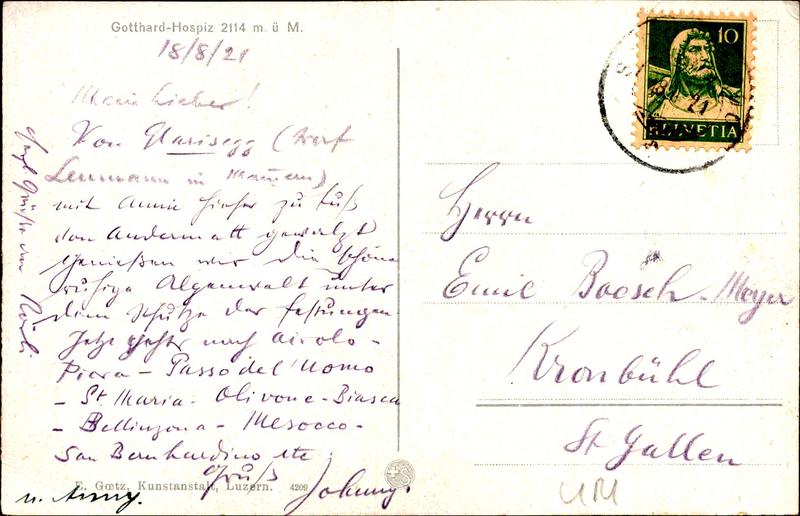 Gotthard-Hospiz 2114 m. ü M.
18/8/21
Mein Lieber!
Von Glarisegg (
in
mit Annie hieher zu Fuß
von Andermatt gewalzt
Genießen wir die schöne
ruhige Alpenwelt unter
dem Schutze der Festungen
Jetzt gehts nach Airolo -
Piora - Passo del'Uomo
- St Maria - Olivone - Biasca
- Bellinzona - Mesocco -
San Bernhardino etc
Gruß
Johnny.
u. Anny.
E. Gœtz, Kunstanstalt, Luzern. 4209
10
HELVETIA
Herrn
Emil Boesch-Meyer
Kronbühl
St Gallen